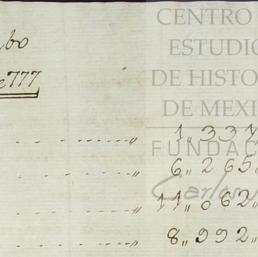 CENTRO
ESTUDIO
DE HISTO
DE MEXI
FUNDAC
Carlos
777
1,,337
6,,265,,
11,,062,,
8,,992,,